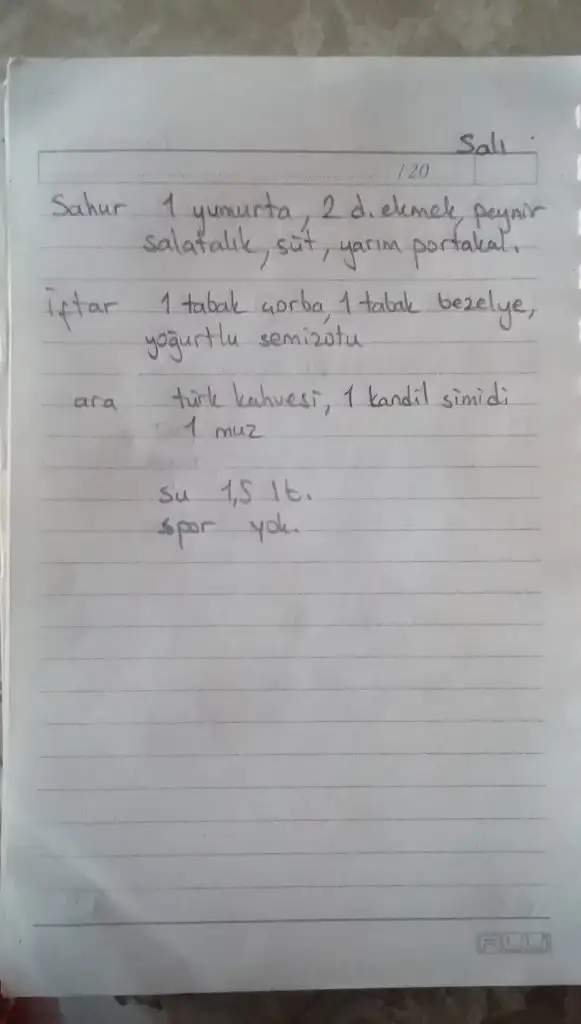 Salı
/20
Sahur 1 yumurta, 2 d. ekmek, peynir
salatalık, süt, yarım portakal.
iftar 1 tabak çorba, 1 tabak bezelye,
yoğurtlu semizotu
ara türk kahvesi, 1 kandil simidi
1 muz
su 1,5 lt.
spor yok.